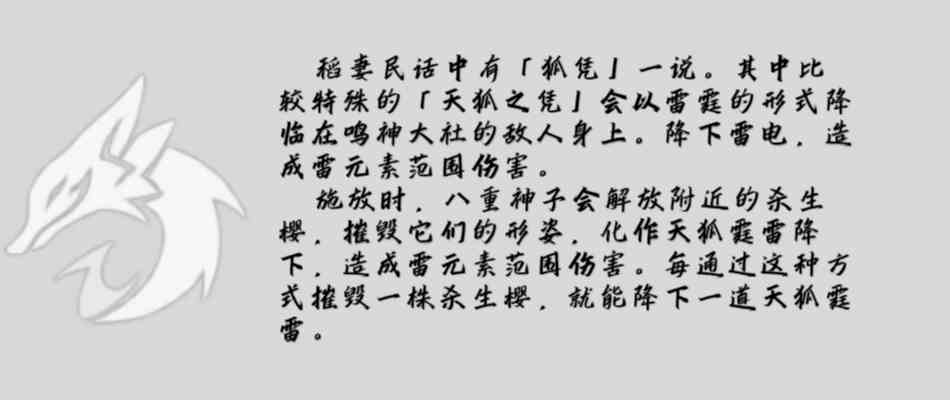 稻妻民话中有「狐凭」一说。其中比
较特殊的「天狐之凭」会以雷霆的形式降
临在鸣神大社的敌人身上。降下雷电，造
成雷元素范围伤害。
施放时，八重神子会解放附近的杀生
樱，摧毁它们的形姿，化作天狐霆雷降
下，造成雷元素范围伤害。每通过这种方
式摧毁一株杀生樱，就能降下一道天狐霆
雷。